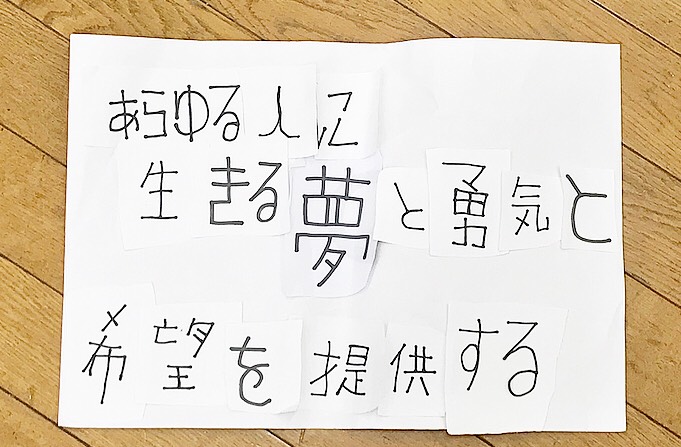 あらゆる人に
生きる夢と勇気と
希望を提供する